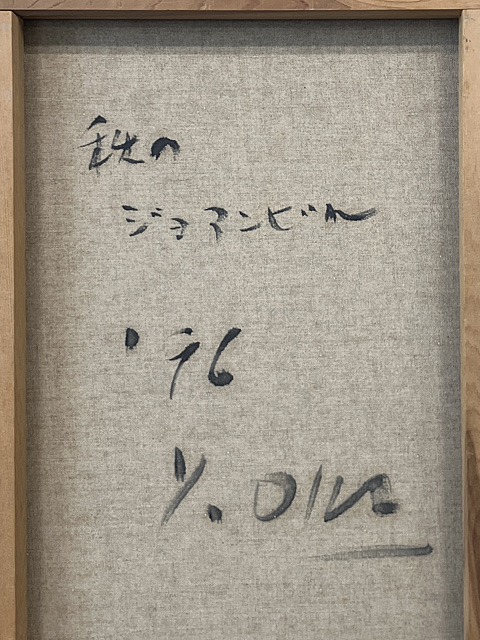 秋の
ジョアンビル
'76
Y.